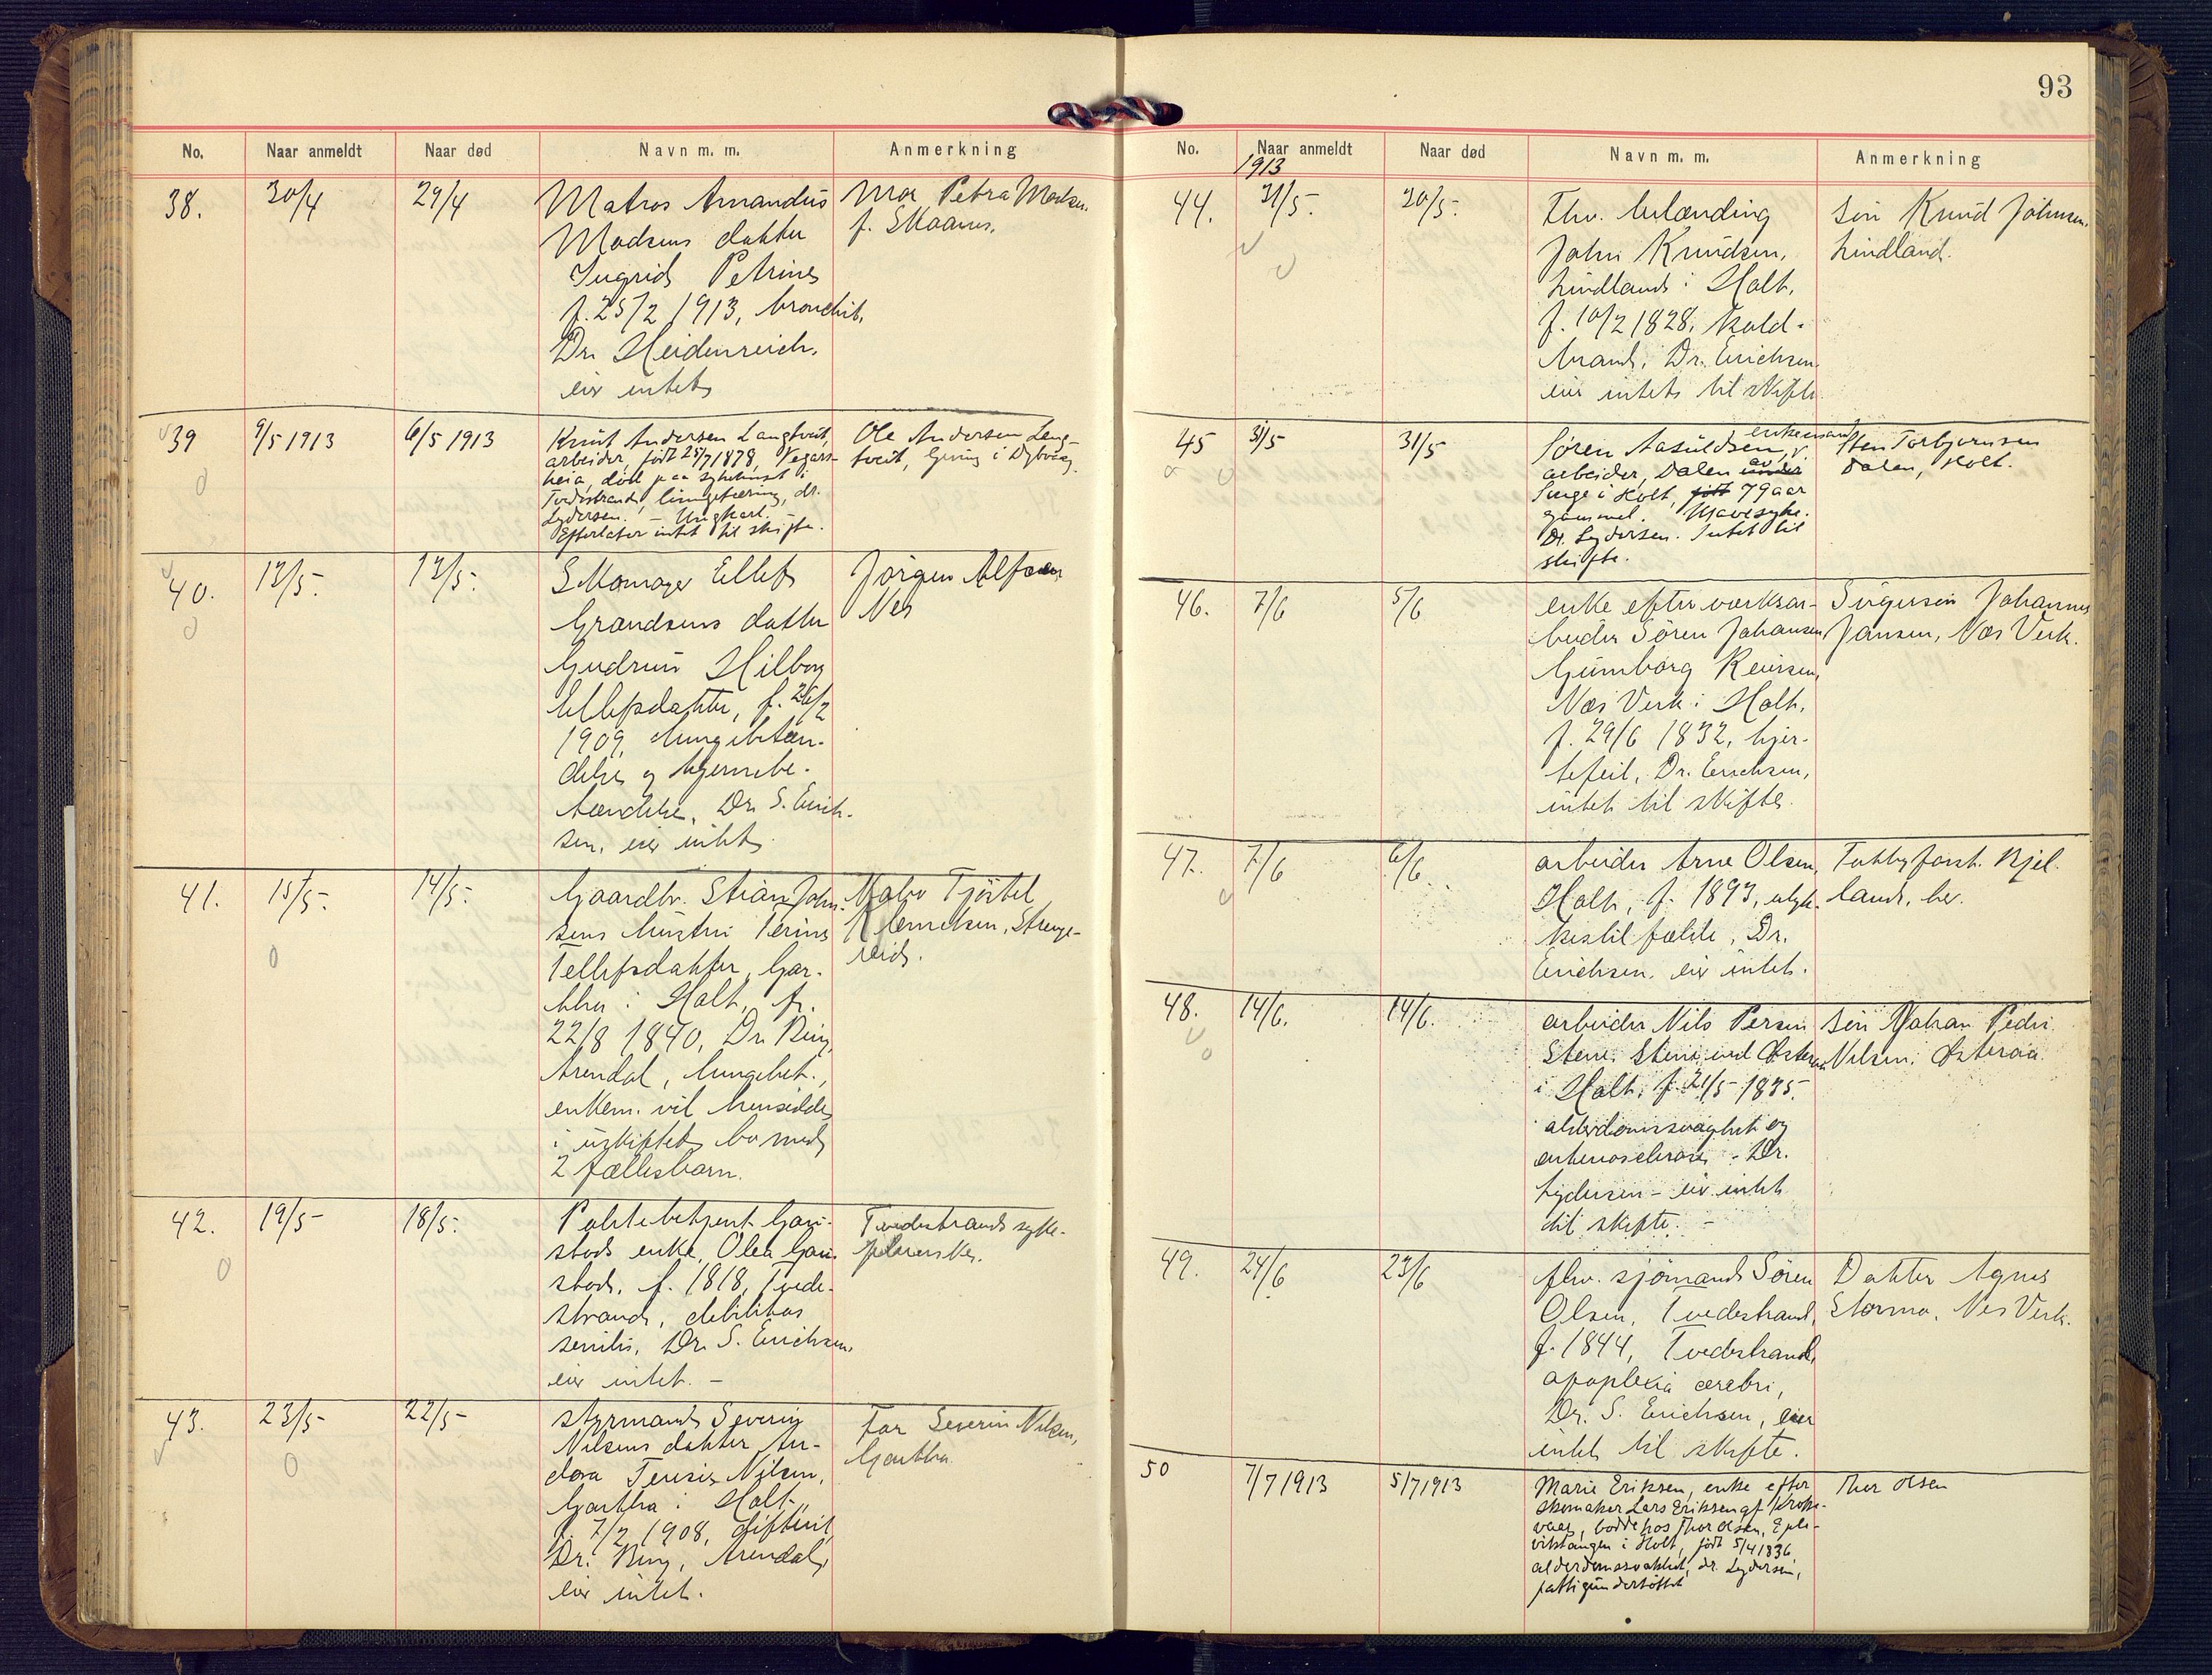 93
No. Naar anmeldt Naar død Navn m. m. Anmerkning
38. 30/4 29/4 Matros Amandus
Madsens datter
Ingrid Petrine
f. 25/2 1913, bronchit.
Dr. Heidenreich.
eier intet
Mor Petra Madsen
f. Skaanes.
39 9/5 1913 6/5 1913 Knut Andersen Langtveit,
arbeider, født 25/7 1878, Vegars-
heia, død paa sykehuset i
Tvedestrand, lungetæring, dr.
Lydersen. – Ungkarl.
Efterlater intet til skifte.
Ole Andersen Lang-
tveit, Gjeving i Dybvåg.
40. 13/5- 12/5- Skomager Ellef
Grandsens datter
Gudrun Hilborg
Ellefsdatter, f. 26/2
1909, lungebetæn-
delse og hjernebe-
tændelse. Dr. S. Erich-
sen. eier intet
Jørgen Alfsen
Nes
41. 15/5- 14/5- Gaardbr. Stian John-
sens hustru Terine
Tellefsdatter, Gar-
tha i Holt, f.
22/8 1840, Dr. Bing,
Arendal, lungebet.,
enkem. vil hensidde
i uskiftet bo med
2 fællesbarn.
Nabo Tjøstel
Henriksen, Strenge-
reid.
42. 19/5- 18/5- Politibetjent Gau-
stads enke, Olea Gau-
stad, f. 1818, Tvede-
strand, debilitas
senilis, Dr. S. Erichsen,
eier intet. –
Tvedestrands syke-
pleierske.
43. 23/5- 22/5- styrmand Severin
Nilsens datter An-
dora Teresie Nilsen,
Gartha i Holt,
f. 7/2 1908, difterit,
Dr. Bing, Arendal,
eier intet.
Far Severin Nilsen,
Gartha
No. Naar anmeldt Naar død Navn m. m. Anmerkning
1913
44. 31/5- 30/5- Fhv. utlænding
John Knudsen,
Lindland i Holt,
f. 10/2 1828, kold-
brand, Dr. Erichsen
eier intet til skifte
Søn Knud Johnsen,
Lindland.
45 31/5 31/5 Søren Aasuldsen, enkemand
arbeider, Dalen av
Songe i Holt, født 79 aar
gammel. Mavesyke.
Dr. Lydersen. Intet til
skifte.
Sten Torbjørnsen
Dalen, Holt.
46. 7/6 5/6 enke efter verksar-
beider Søren Johansen
Gunborg Reiersen,
Næs Verk i Holt,
f. 29/6 1832, hjer-
tefeil, Dr. Erichsen,
intet til skifte.
Svigersøn Johannes
Jansen, Næs Verk.
47. 7/6 6/6 arbeider Arne Olsen,
Holt, f. 1893, ulyk-
kestilfælde, Dr.
Erichsen. eier intet.
Kjel-
land, her.
48. 14/6. 14/6. arbeider Nils Persen
Stene, Stene ved Østeraa
i Holt, f. 21/5- 1835.
alderdomssvaghet og
arteriosclerose – Dr.
Lydersen – eier intet
til skifte. –
Søn Johan Peder
Nilsen, Østeraa.
49. 24/6 23/6 fhv. sjømand Søren
Olsen, Tvedestrand,
f. 1844, Tvedestrand,
apoplexia cerebri,
Dr. S. Erichsen, eier
intet til skifte.
Datter Agnes
Storma, Nes Verk.
50 7/7 1913 5/7 1913 Marie Eriksen, enke efter
skomaker Lars Eriksen af Krok-
vaag, bodde hos Thor Olsen, Eple-
vikstangen i Holt, født 5/4 1836
alderdomssvakhet, dr. Lydersen,
fattigunderstøttet
Thor Olsen